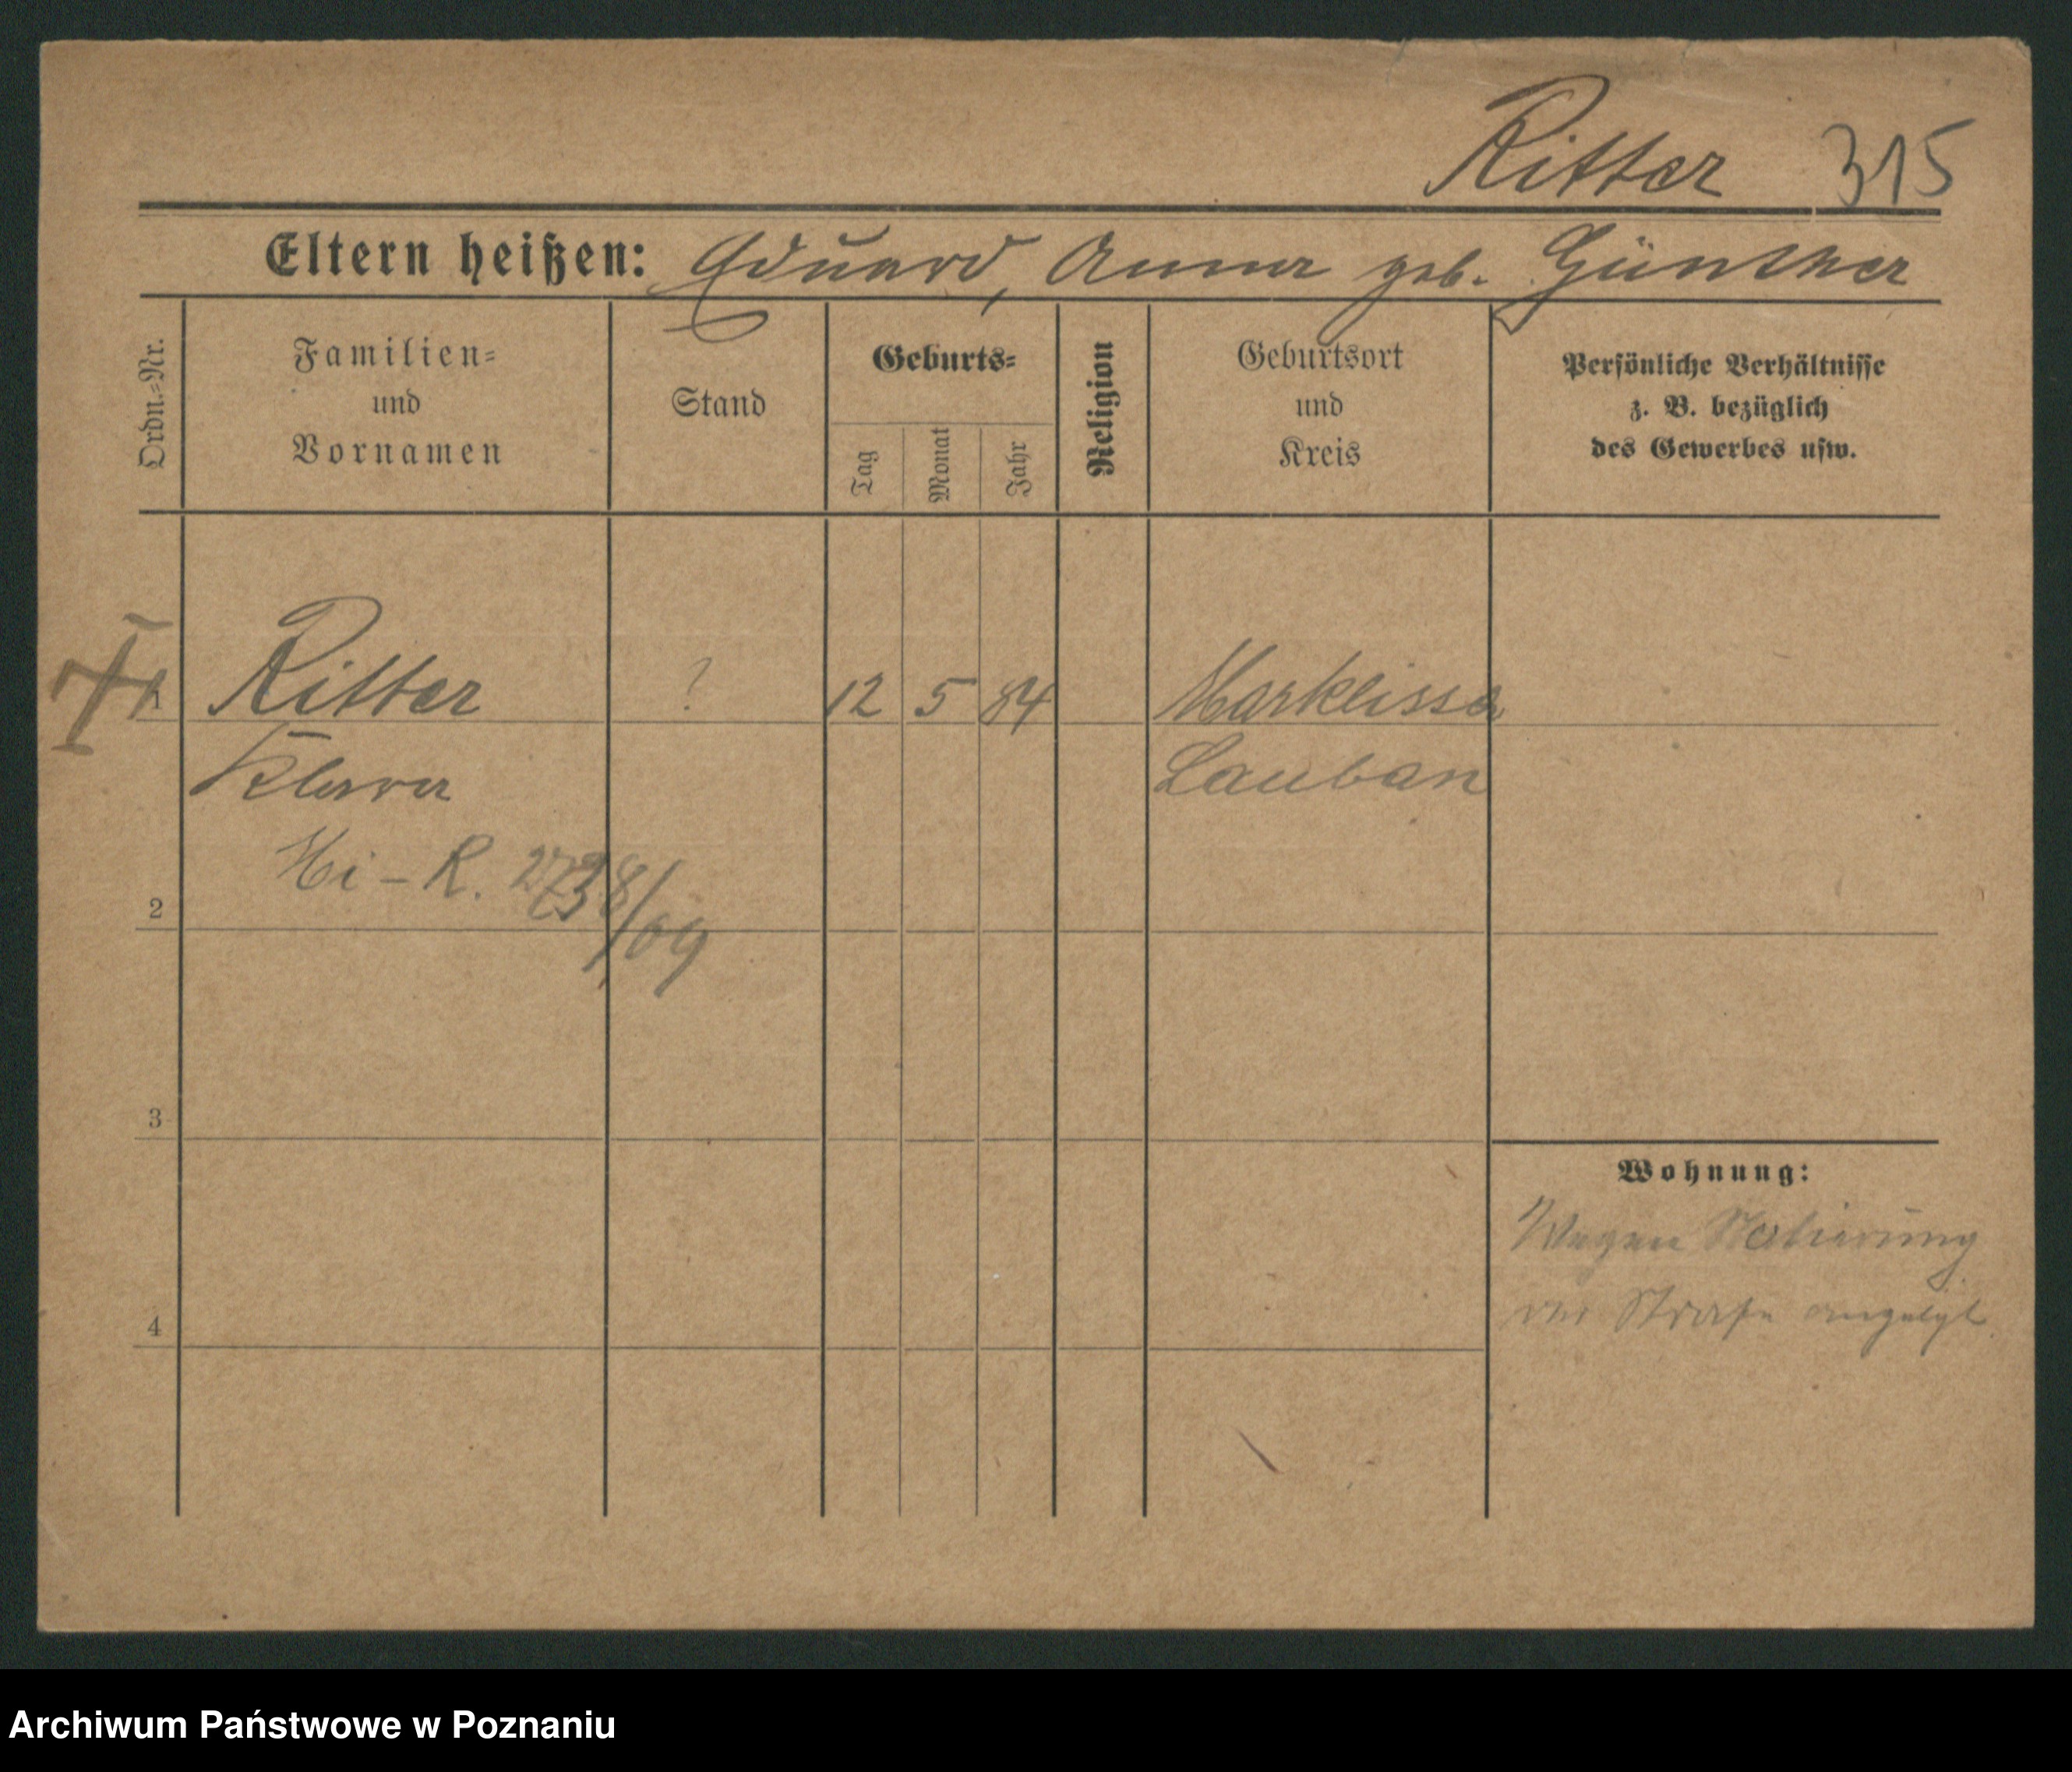 Ritter 315
Eltern heißen: Eduard, Anna geb. Günther
Ordn.-Nr.
Familien-
und
Vornamen
Stand
Geburts-
Tag
Monat
Jahr
Religion
Geburtsort
und
Kreis
Persönliche Verhältnisse
z. B. bezüglich
des Gewerbes usw.
1 Ritter ? 12 5 84 Marklissa
Klara Lauban
Hi-R. 2738/09
2
3
Wohnung:
Wegen Notierung
der Strafe angelegt.
4
Archiwum Państwowe w Poznaniu